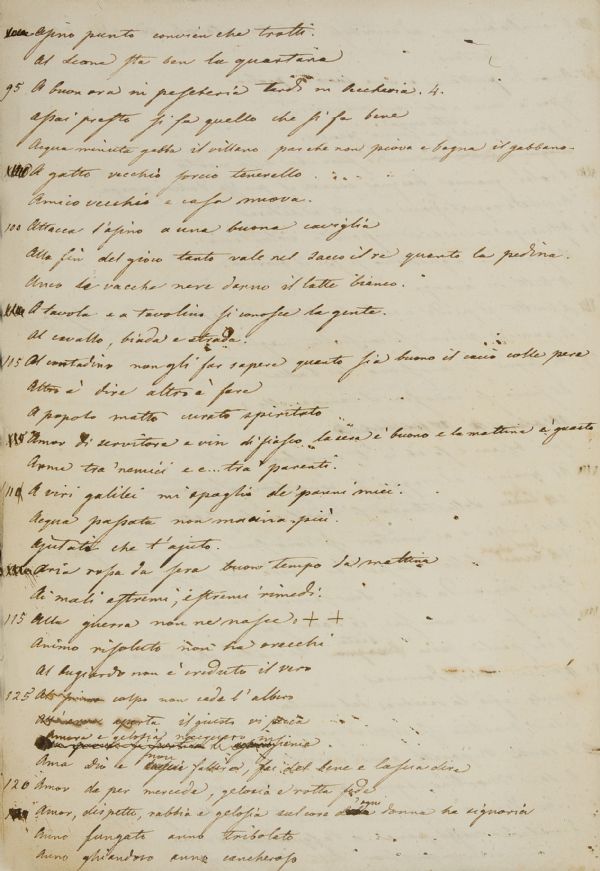 Asino punto convien che trotti.
Al Leone sta ben la quartana
95 A buon ora in pescheria tardi in beccheria. 4.
Assai presto si fa quello che si fa bene
Acqua minuta gabba il villano perche non piova e bagna il gabbano.
A gatto vecchio sorcio tenerello
Amico vecchio e casa nuova.
100 Attacca l'asino a una buona caviglia
Alla fin del gioco tanto vale nel sacco il re quanto la pedina.
Anco le vacche nere danno il latte bianco.
A tavola e a tavolino si conosce la gente.
Al cavallo, biada e strada.
115 Al contadino non gli far sapere quanto sia buono il cacio colle pere
Altro è dire altro è fare
A popolo matto curato spiritato
Amor di servitore e vin di fiasco la sera è buono e la mattina è guasto
Arme tra nemici e c... tra parenti.
110 A viri galilei mi spoglio de' panni miei.
Acqua passata non macina più.
Ajutati che t'ajuto.
Aria rossa da sera buon tempo da mattina
Ai mali estremi, estremi rimedi.
115 Alla guerra non ne nasce + +
Animo risoluto non ha orecchi
Al bugiardo non è creduto il vero
125 Al primo colpo non cade l'albero
aperta il giusto vi pecca
Amore e gelosia nacquero insieme
Ama Dio e non fallire, fai del bene e lascia dire
120 Amor da per mercede, gelosia e rotta fede
Amor, dispetti, rabbia e gelosia sul core d'ogni donna ha signoria
Anno fungato anno tribolato
Anno ghiandoso anno cancheroso